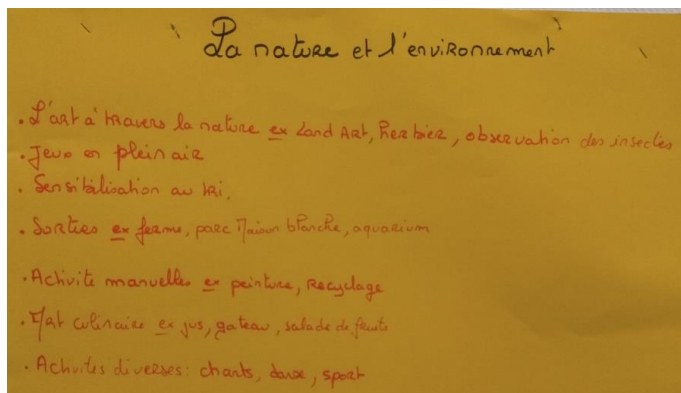 La nature et l'environnement
. L'art à travers la nature ex Land Art, Herbier, observation des insectes
. Jeux en plein air
. Sensibilisation au tri.
. Sorties ex ferme, parc Maison blanche, aquarium
. Activité manuelles ex peinture, Recyclage
. Art culinaire ex jus, gateau, salade de fruits
. Activités diverses: chants, danse, sport